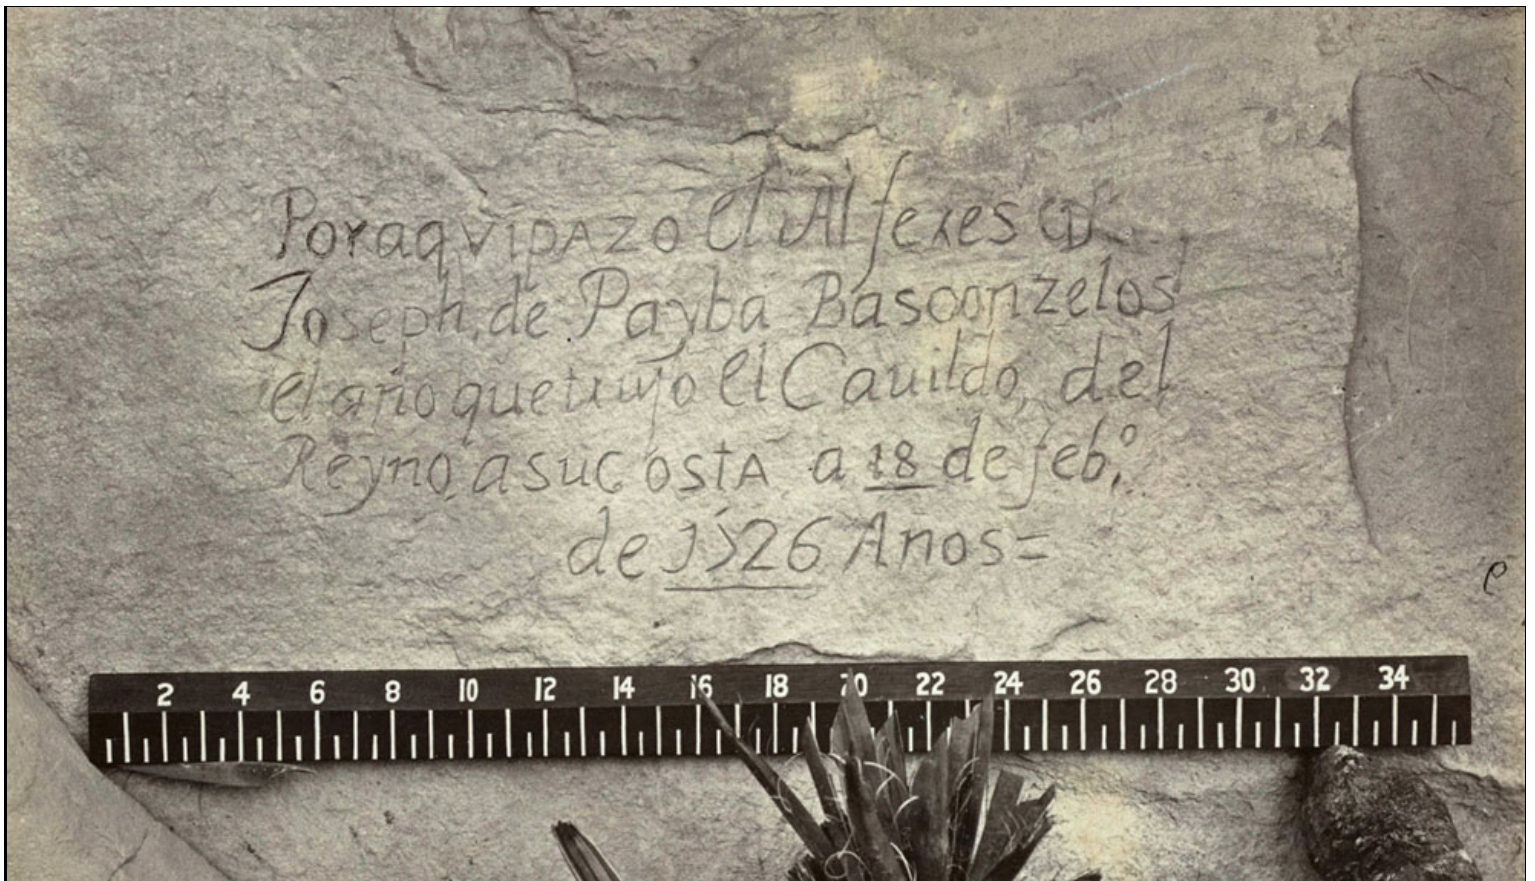 Por aqvi pazo el Alferes Dn
Joseph de Payba Basconzelos
el año que trujo el Cauildo del
Reyno a su costa a 18 de febo
de 1726 Años=
e
2 4 6 8 10 12 14 16 18 20 22 24 26 28 30 32 34